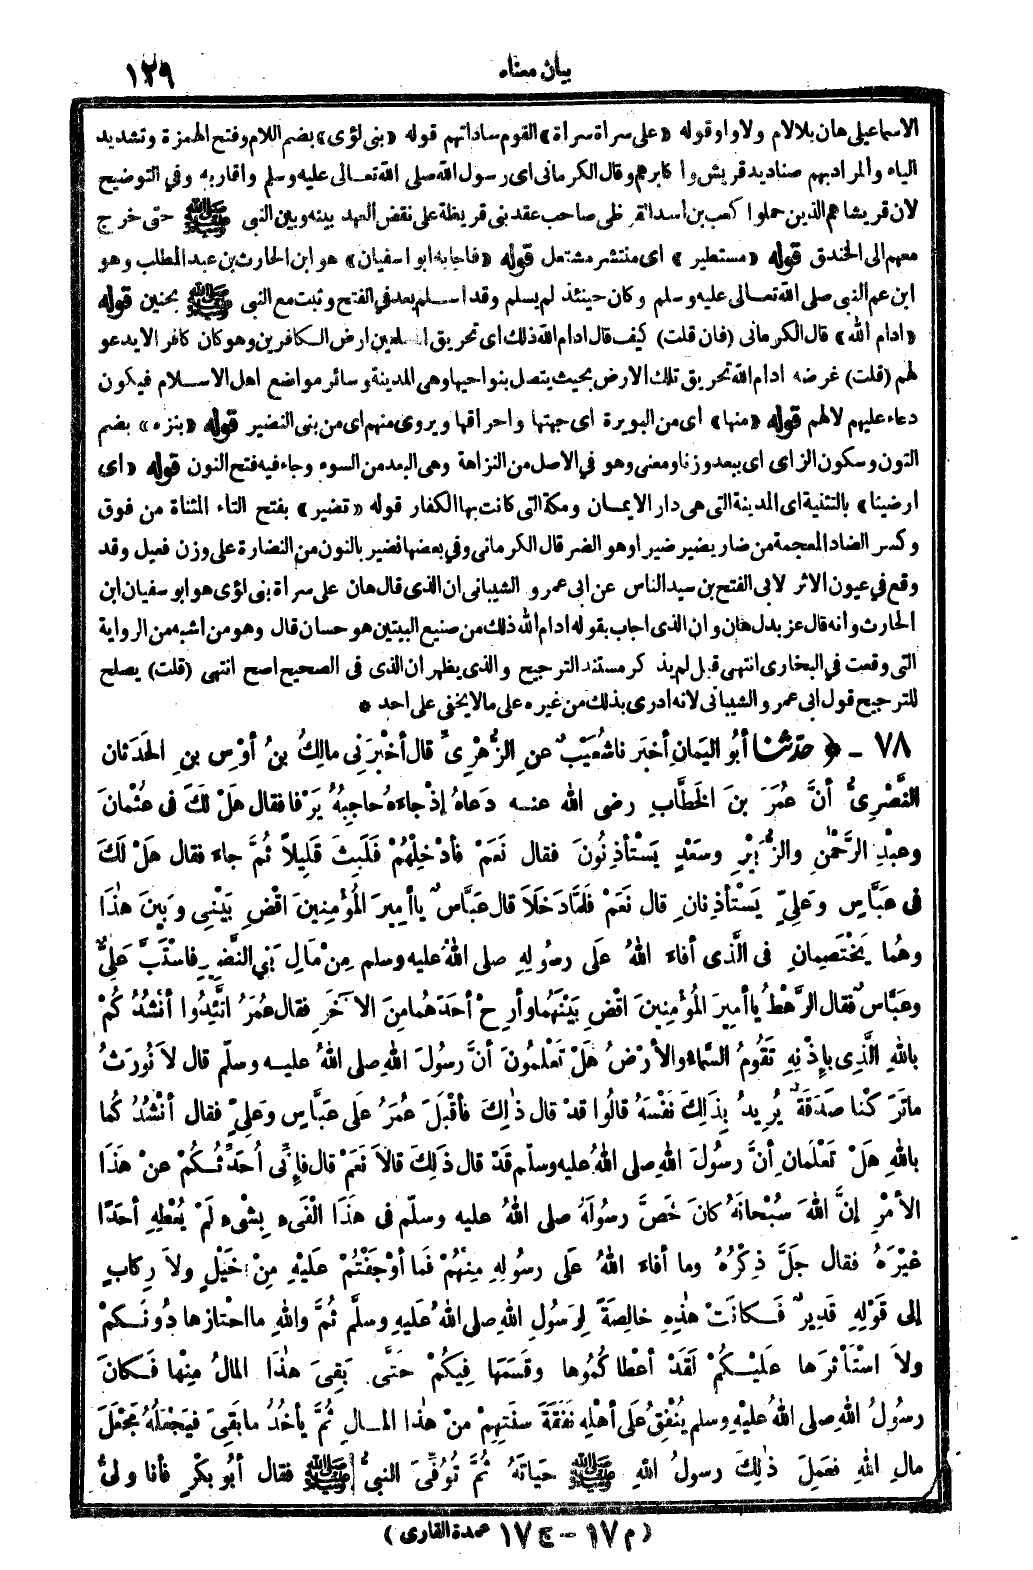 بيان معناه
١٢٩
الاسماعيلى هان بلالام ولا واو قوله «على سراة سراة» القوم ساداتهم قوله «بنى لؤى» بضم اللام وفتح الهمزة وتشديد
الياء والمراد بهم صناديد قريش وا كابرهم وقال الكرمانى اى رسول الله صلى الله تعالى عليه وسلم واقاربه وفي التوضيح
لان قريشا هم الذين حملوا كعب بن اسد القرظى صاحب عقد بنى قريظة على نقض العهد بينه وبين النبى ﷺ حتى خرج
معهم الى الخندق قوله «مستطير» اى منتشر مشتعل قوله «فاجابه ابو اسفيان» هو ابن الحارث بن عبد المطلب وهو
ابن عم النبى صلى الله تعالى عليه وسلم وكان حينئذ لم يسلم وقد اسلم بعد في الفتح وثبت مع النبى ﷺ بحنين قوله
«ادام الله» قال الكرمانى (فان قلت) كيف قال ادام الله ذلك اى تحريق المسلمين ارض الكافرين وهو كان كافر الا يدعو
لهم (قلت) غرضه ادام الله تحريق تلك الارض بحيث يتصل بنواحيها وهى المدينة وسائر مواضع اهل الاسلام فيكون
دعاء عليهم لا لهم قوله «منها» اى من البويرة اى جهتها واحراقها ويروى منهم اى من بنى النضير قوله «بنزه» بضم
النون وسكون الزاى اى ببعد وزنا ومعنى وهو في الاصل من النزاهة وهى البعد من السوء وجاء فيه فتح النون قوله «اى
ارضينا» بالتثنية اى المدينة التى هى دار الايمان ومكة التى كانت بها الكفار قوله «تضير» بفتح التاء المثناة من فوق
وكسر الضاد المعجمة من ضار يضير ضيرا وهو الضر قال الكرمانى وفي بعضها نضير بالنون من النضارة على وزن فعيل وقد
وقع في عيون الاثر لابى الفتح بن سيد الناس عن ابى عمرو الشيبانى ان الذى قال هان على سراة بنى لؤى هو ابو سفيان ابن
الحارث وأنه قال عز بدل هان وان الذى اجاب بقوله ادام الله ذلك من صنيع البيتين هو حسان قال وهو من اشبه من الرواية
التى وقعت في البخارى انتهى قبل لم يذ كر مستند الترجيح والذى يظهر ان الذى فى الصحيح اصح انتهى (قلت) يصلح
للترجيح قول ابى عمرو الشيبانى لانه ادرى بذلك من غيره على ما لا يخفى على احد *
٧٨ - ﴿ حدثنا أبُو اليَمانِ أخبرَنا شُعَيْبٌ عنِ الزُّهْرِىِّ قال أخْبرَنِى مالِكُ بنُ أوْسِ بنِ الحَدَثانِ
النَّصْرِىُّ أنَّ عُمَرَ بنَ الخَطَّابِ رضى الله عنه دَعاهُ إذْ جاءهُ حاجِبُهُ يَرْفا فقال هَلْ لَكَ فى عُثْمانَ
وعبْدِ الرَّحْمٰنِ والزُّبَيْرِ وسَعْدٍ يَسْتأذِنُونَ فقال نَعَمْ فأدْخِلْهُمْ فَلَبِثَ قَلِيلاً ثُمَّ جاءَ فقال هَلْ لَكَ
فى عبَّاسٍ وعَلِىٍّ يَسْتأذِنانِ قال نَعَمْ فلمَّا دَخَلاَ قال عبَّاسٌ ياأمِيرَ المُؤمِنِينَ اقْضِ بَيْنِى وبَينَ هٰذَا
وهُما يَخْتَصِمانِ فى الَّذِى أفاءَ اللهُ علَى رسُولِهِ صلى اللهُ عليه وسلم مِنْ مَالِ بَنِي النَّضِيرِ فاسْتَبَّ عَلِىٌّ
وعَبَّاسٌ فقال الرَّهْطُ ياأمِيرَ المُؤمِنِينَ اقْضِ بَيْنَهُما وأرِحْ أحَدَهُما مِنَ الآخَرِ فقال عمَرُ اتَّئِدُوا أنْشُدُكُمْ
باللهِ الَّذِى بإذْنِهِ تَقُومُ السَّماءُ والأرْضُ هَلْ تَعْلمُونَ أنَّ رسُولَ اللهِ صلى اللهُ عليه وسلّم قال لاَ نُورَثُ
ماتَرَكْنا صَدَقَةٌ يُرِيدُ بِذَلِكَ نَفْسَهُ قالُوا قدْ قال ذٰلِكَ فأقْبَلَ عُمَرُ علَى عبَّاسٍ وعَلِىٍّ فقال أنْشُدُ كُما
باللهِ هَلْ تَعْلَمانِ أنَّ رسُولَ اللهِ صلى اللهُ عليه وسلّم قَدْ قال ذَلِكَ قالاَ نَعَمْ قال فإنِّى أُحَدِّثُكُمْ عنْ هَذَا
الأمْرِ إنَّ اللهَ سُبْحانَهُ كانَ خَصَّ رسُولَهُ صلى اللهُ عليه وسلّم فى هَذَا الْفَىءِ بِشْىءٍ لَمْ يُعْطِهِ أحَدًا
غيْرَهُ فقال جَلَّ ذِكْرُهُ وما أفاءَ اللهُ علَى رسُولِهِ مِنْهُمْ فَما أوْجَفْتُمْ علَيْهِ مِنْ خَيْلٍ ولاَ رِكابٍ
إلى قَوْلِهِ قَدِيرٌ فَكانَتْ هٰذِهِ خالِصَةً لِرَسُولِ اللهِ صلى اللهُ علَيهِ وسلَّم ثُمَّ واللهِ مااحْتازها دُونَكمْ
ولاَ اسْتأثرَها علَيْكُمْ لَقَدْ أعْطا كُمُوها وقَسَمَها فِيكُمْ حَتَّى بَقِىَ هٰذَا المالُ مِنْها فَكانَ
رسُولُ اللهِ صلى اللهُ عليْهِ وسلم يُنْفِقُ علَى أهْلِهِ نَفَقَةَ سنَتِهِمْ مِنْ هٰذا المالِ ثُمَّ يأخُذُ ما بَقِىَ فيَجْعَلُهُ مَجْعَلَ
مالِ اللهِ فعَمِلَ ذٰلِكَ رسولُ اللهِ ﷺ حَياتَهُ ثُمَّ تُوُفِّىَ النبىُّ ﷺ فقال أبُو بكْرٍ فأنا ولىُّ
(م ١٧ - ج ١٧ عمدة القارى)